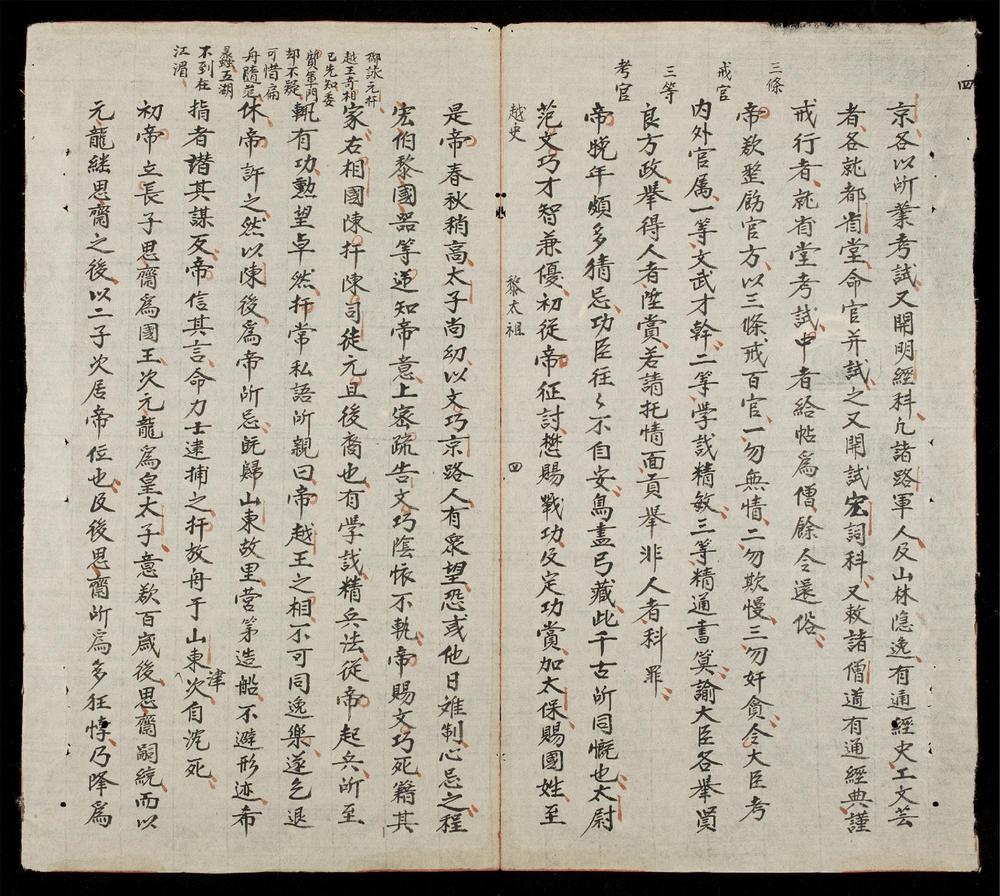 四
三條
戒官
三等
考官
京各以所業考試又開明經科凡諸路軍人及山林隐逸有通經史工文芸
者各就都省堂命官并試之又開試宏詞科又敕諸僧道有通經典謹
戒行者就省堂考試中者給帖爲僧餘令還俗
帝欲整飭官方以三條戒百官一勿無情二勿欺慢三勿奸貪令大臣考
内外官属一等文武才幹二等学識精敏三等精通書筭諭大臣各舉賢
良方政舉得人者陞賞若請托情面貢舉非人者科罪
帝晚年頗多猜忌功臣往々不自安鳥盡弓藏此千古所同慨也太尉
范文巧才智兼優初從帝征討懋賜戰功及定功賞加太保賜國姓至
越史
黎太祖
四
是帝春秋稍高太子尚幼以文巧京路人有衆望恐或他日难制心忌之程
宏伯黎國器等逆知帝意上密疏告文巧陰恢不軌帝賜文巧死籍其
家右相國陳扜陳司徒元旦後裔也有学識精兵法從帝起兵所至
輒有功勲望卓然扜常私語所親曰帝越王之相不可同逸樂遂乞退
休帝許之然以陳後爲帝所忌既歸山東故里营第造船不避形迹希
指者譖其謀反帝信其言命力士逮捕之扜放舟于山東次自沈死
津
初帝立長子思齋爲國王次元龍爲皇太子意欲百歲後思齋嗣統而以
元龍継思齋之後以二子次居帝位也及後思齋所爲多狂悖乃降爲
鄭詠元扜
越王奇相
已先知委
質軍門
却不疑
可惜扁
舟随范
蠡五湖
不到在
江湄